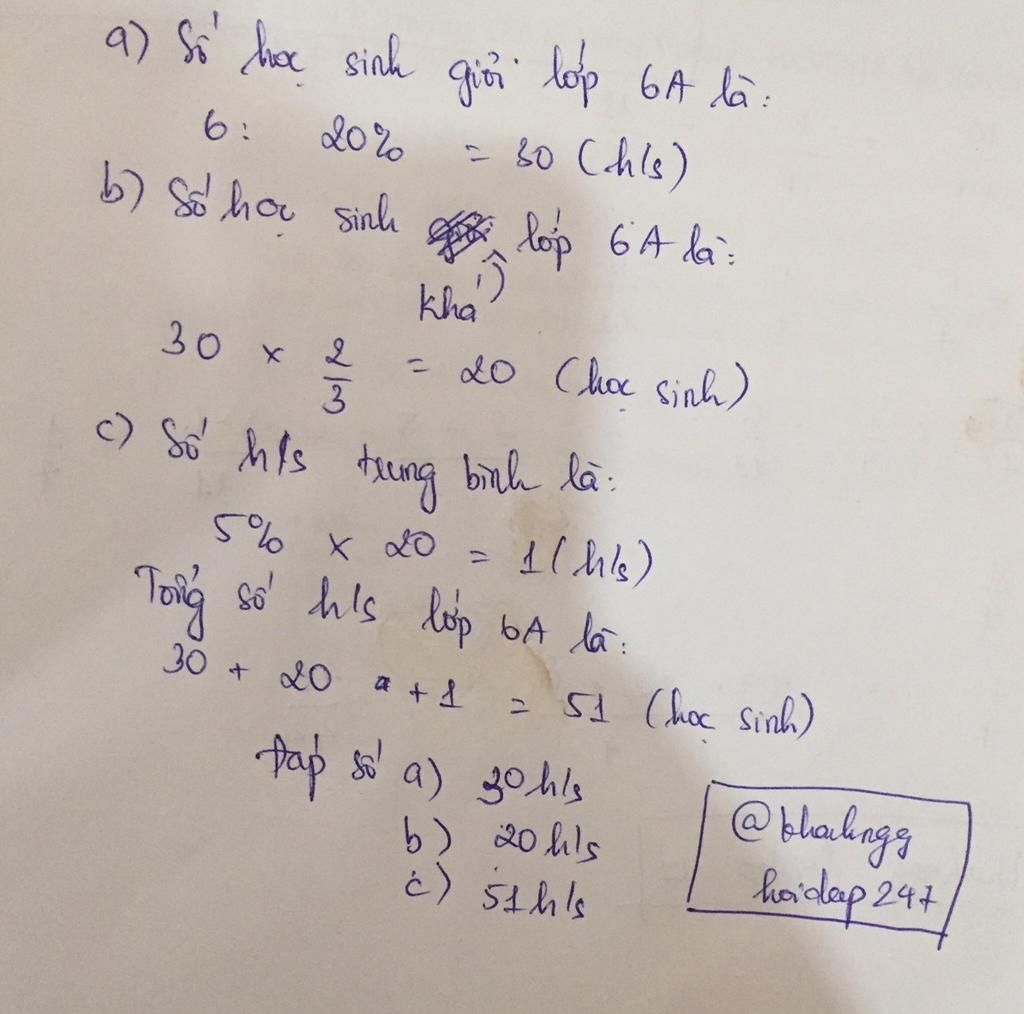 a) Số học sinh giỏi lớp 6A là:
6 : 20% = 30 (h/s)
b) Số học sinh khá lớp 6A là:
30 x 2/3 = 20 (học sinh)
c) Số h/s trung bình là:
5% x 20 = 1 (h/s)
Tổng số h/s lớp 6A là:
30 + 20 + 1 = 51 (học sinh)
Đáp số a) 30 h/s
b) 20 h/s
c) 51 h/s
@khahngg
hoidap247